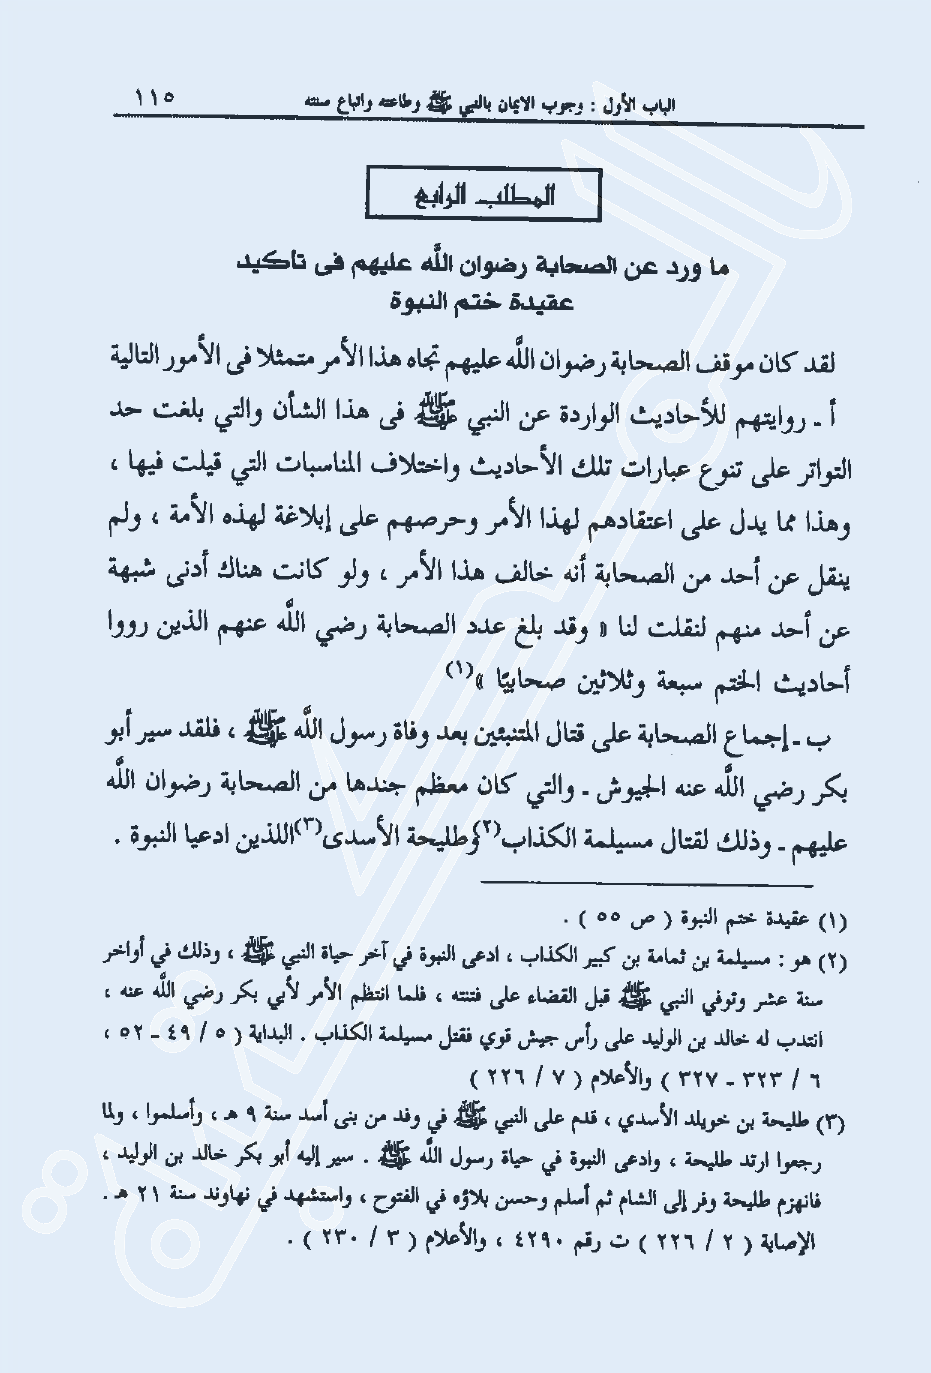 الباب الأول : وجوب الايمان بالنبي ﷺ وطاعته واتباع سنته ١١٥
المطلب الرابع
ما ورد عن الصحابة رضوان الله عليهم فى تأكيد
عقيدة ختم النبوة
لقد كان موقف الصحابة رضوان الله عليهم تجاه هذا الأمر متمثلا فى الأمور التالية
أ ـ روايتهم للأحاديث الواردة عن النبي ﷺ فى هذا الشأن والتي بلغت حد
التواتر على تنوع عبارات تلك الأحاديث واختلاف المناسبات التي قيلت فيها ،
وهذا مما يدل على اعتقادهم لهذا الأمر وحرصهم على إبلاغة لهذه الأمة ، ولم
ينقل عن أحد من الصحابة أنه خالف هذا الأمر ، ولو كانت هناك أدنى شبهة
عن أحد منهم لنقلت لنا « وقد بلغ عدد الصحابة رضي الله عنهم الذين رووا
أحاديث الختم سبعة وثلاثين صحابيًا »(١)
ب ـ إجماع الصحابة على قتال المتنبئين بعد وفاة رسول الله ﷺ ، فلقد سير أبو
بكر رضي الله عنه الجيوش ـ والتي كان معظم جندها من الصحابة رضوان الله
عليهم ـ وذلك لقتال مسيلمة الكذاب(٢)وطليحة الأسدى(٣)اللذين ادعيا النبوة .
(١) عقيدة ختم النبوة ( ص ٥٥ ) .
(٢) هو : مسيلمة بن ثمامة بن كبير الكذاب ، ادعى النبوة في آخر حياة النبي ﷺ ، وذلك في أواخر
سنة عشر وتوفي النبي ﷺ قبل القضاء على فتنته ، فلما انتظم الأمر لأبي بكر رضي الله عنه ،
انتدب له خالد بن الوليد على رأس جيش قوي فقتل مسيلمة الكذاب . البداية ( ٥ / ٤٩ ـ ٥٢ ،
٦ / ٣٢٣ ـ ٣٢٧ ) والأعلام ( ٧ / ٢٢٦ )
(٣) طليحة بن خويلد الأسدي ، قدم على النبي ﷺ في وفد من بنى أسد سنة ٩ هـ ، وأسلموا ، ولما
رجعوا ارتد طليحة ، وادعى النبوة في حياة رسول الله ﷺ . سير إليه أبو بكر خالد بن الوليد ،
فانهزم طليحة وفر إلى الشام ثم أسلم وحسن بلاؤه في الفتوح ، واستشهد في نهاوند سنة ٢١ هـ .
الإصابة ( ٢ / ٢٢٦ ) ت رقم ٤٢٩٠ ، والأعلام ( ٣ / ٢٣٠ ) .